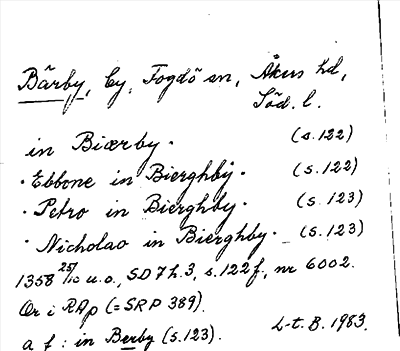 Bärby, by, Fogdö sn, Åkers hd,
Söd. l.
in Biærby. (s.122)
· Ebbone in Bierghby. (s.122)
· Petro in Bierghby. (s.123)
· Nicholao in Bierghby. (s.123)
1358 25/10 u.o., SD 7 h.3, s.122 f., nr 6002.
Or i RAp (= SRP 389).
a f: in Berby (s.123). L-t. B. 1983.